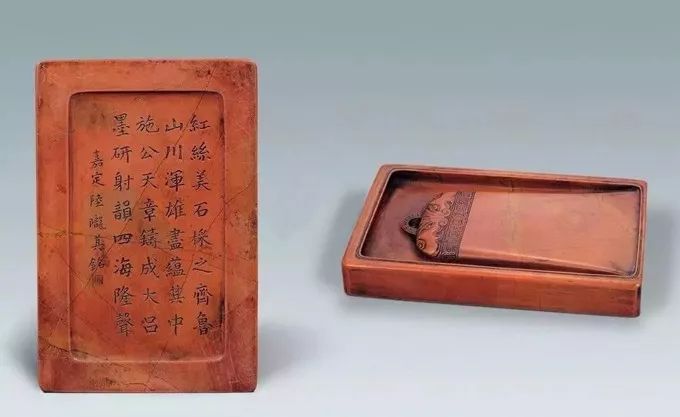 紅絲美石採之齊魯
山川渾雄盡蘊其中
施公天章鑄成大呂
墨研射韻四海隆聲
嘉定陸隴其銘